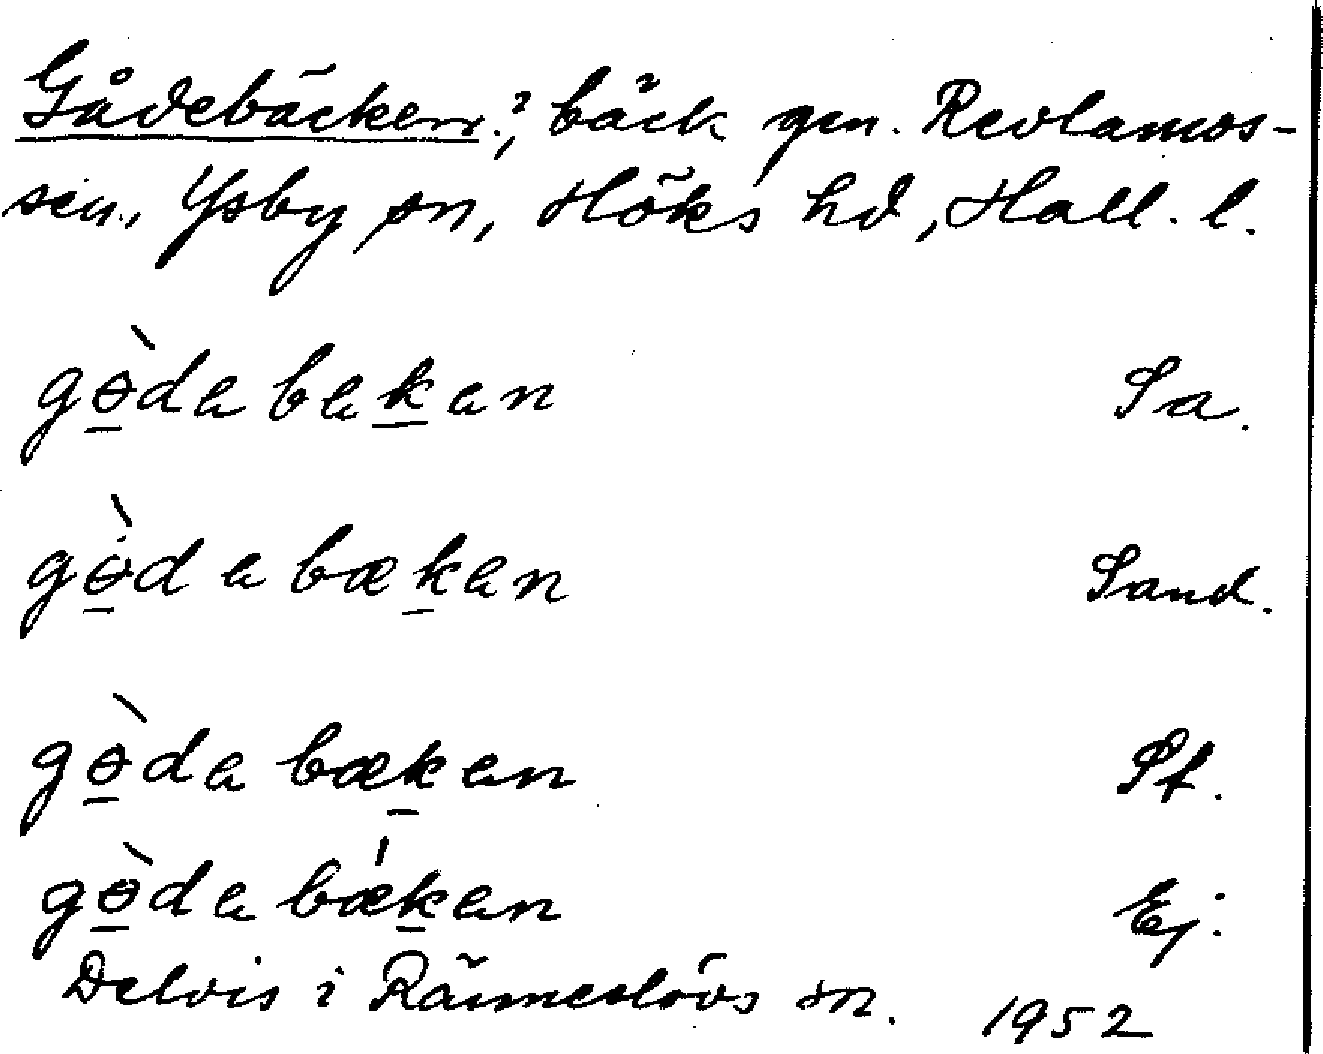 Gådebäcken?, bäck gm. Revlamos-
sen, Ysby sn, Höks hd, Hall. l.
gɵ̀dabakan Sa.
gɵ̀dabækan Sand.
gɵ̀dabækan Pf.
gɵ̀dabækan Ej.
Delvis i Ränneslövs sn. 1952